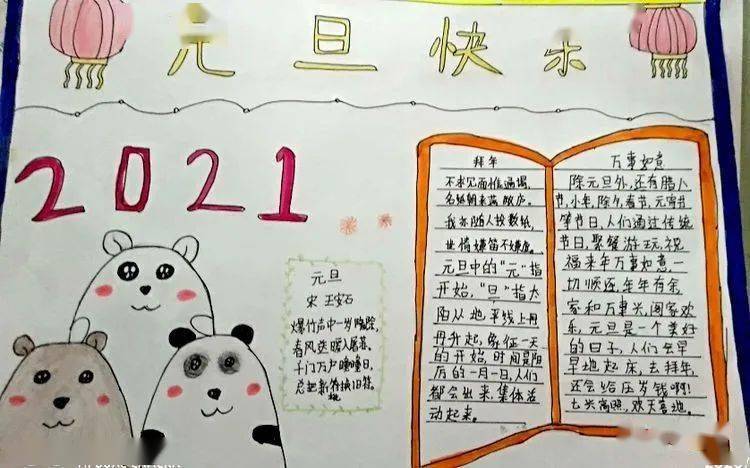 元旦快乐
2021
元旦
宋 王安石
爆竹声中一岁除,
春风送暖入屠苏。
千门万户曈曈日,
总把新桃换旧符。
拜年
不求见面惟通谒,
名纸朝来满敝庐。
我亦随人投数纸,
世情嫌简不嫌虚。
元旦中的“元”指
开始,“旦”指太
阳从地平线上冉
冉升起,象征一天
的开始,时间是阳
历的一月一日,人们
都会出来,集体活
动起来。
万事如意
除元旦外,还有腊八
节,小年,除夕,春节,元宵节
等节日,人们通过传统
节日,聚餐游玩,祝
福来年万事如意一
切顺遂,年年有余
家和万事兴,阖家欢
乐,元旦是一个美好
的日子,人们会早
早地起床,去拜年,
还会给压岁钱啊!
七头高照,欢天喜地。